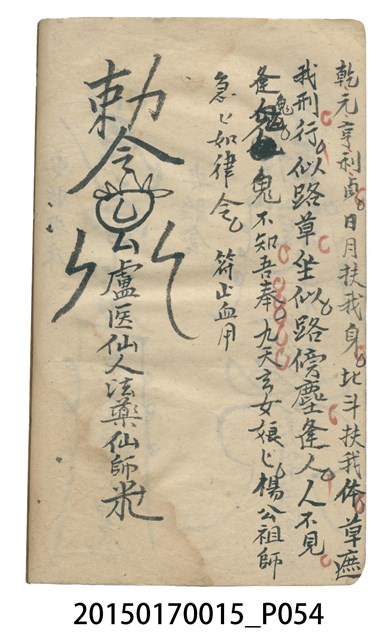 乾元亨利貞日月扶我身北斗扶我体草遮
我刑行似路草坐似路傍塵逢人人不見
逢鬼鬼不知吾奉九天玄女娘匕楊公祖師
急匕如律令 符止血用
勅令 盧医仙人法藥仙師
20150170015_P054